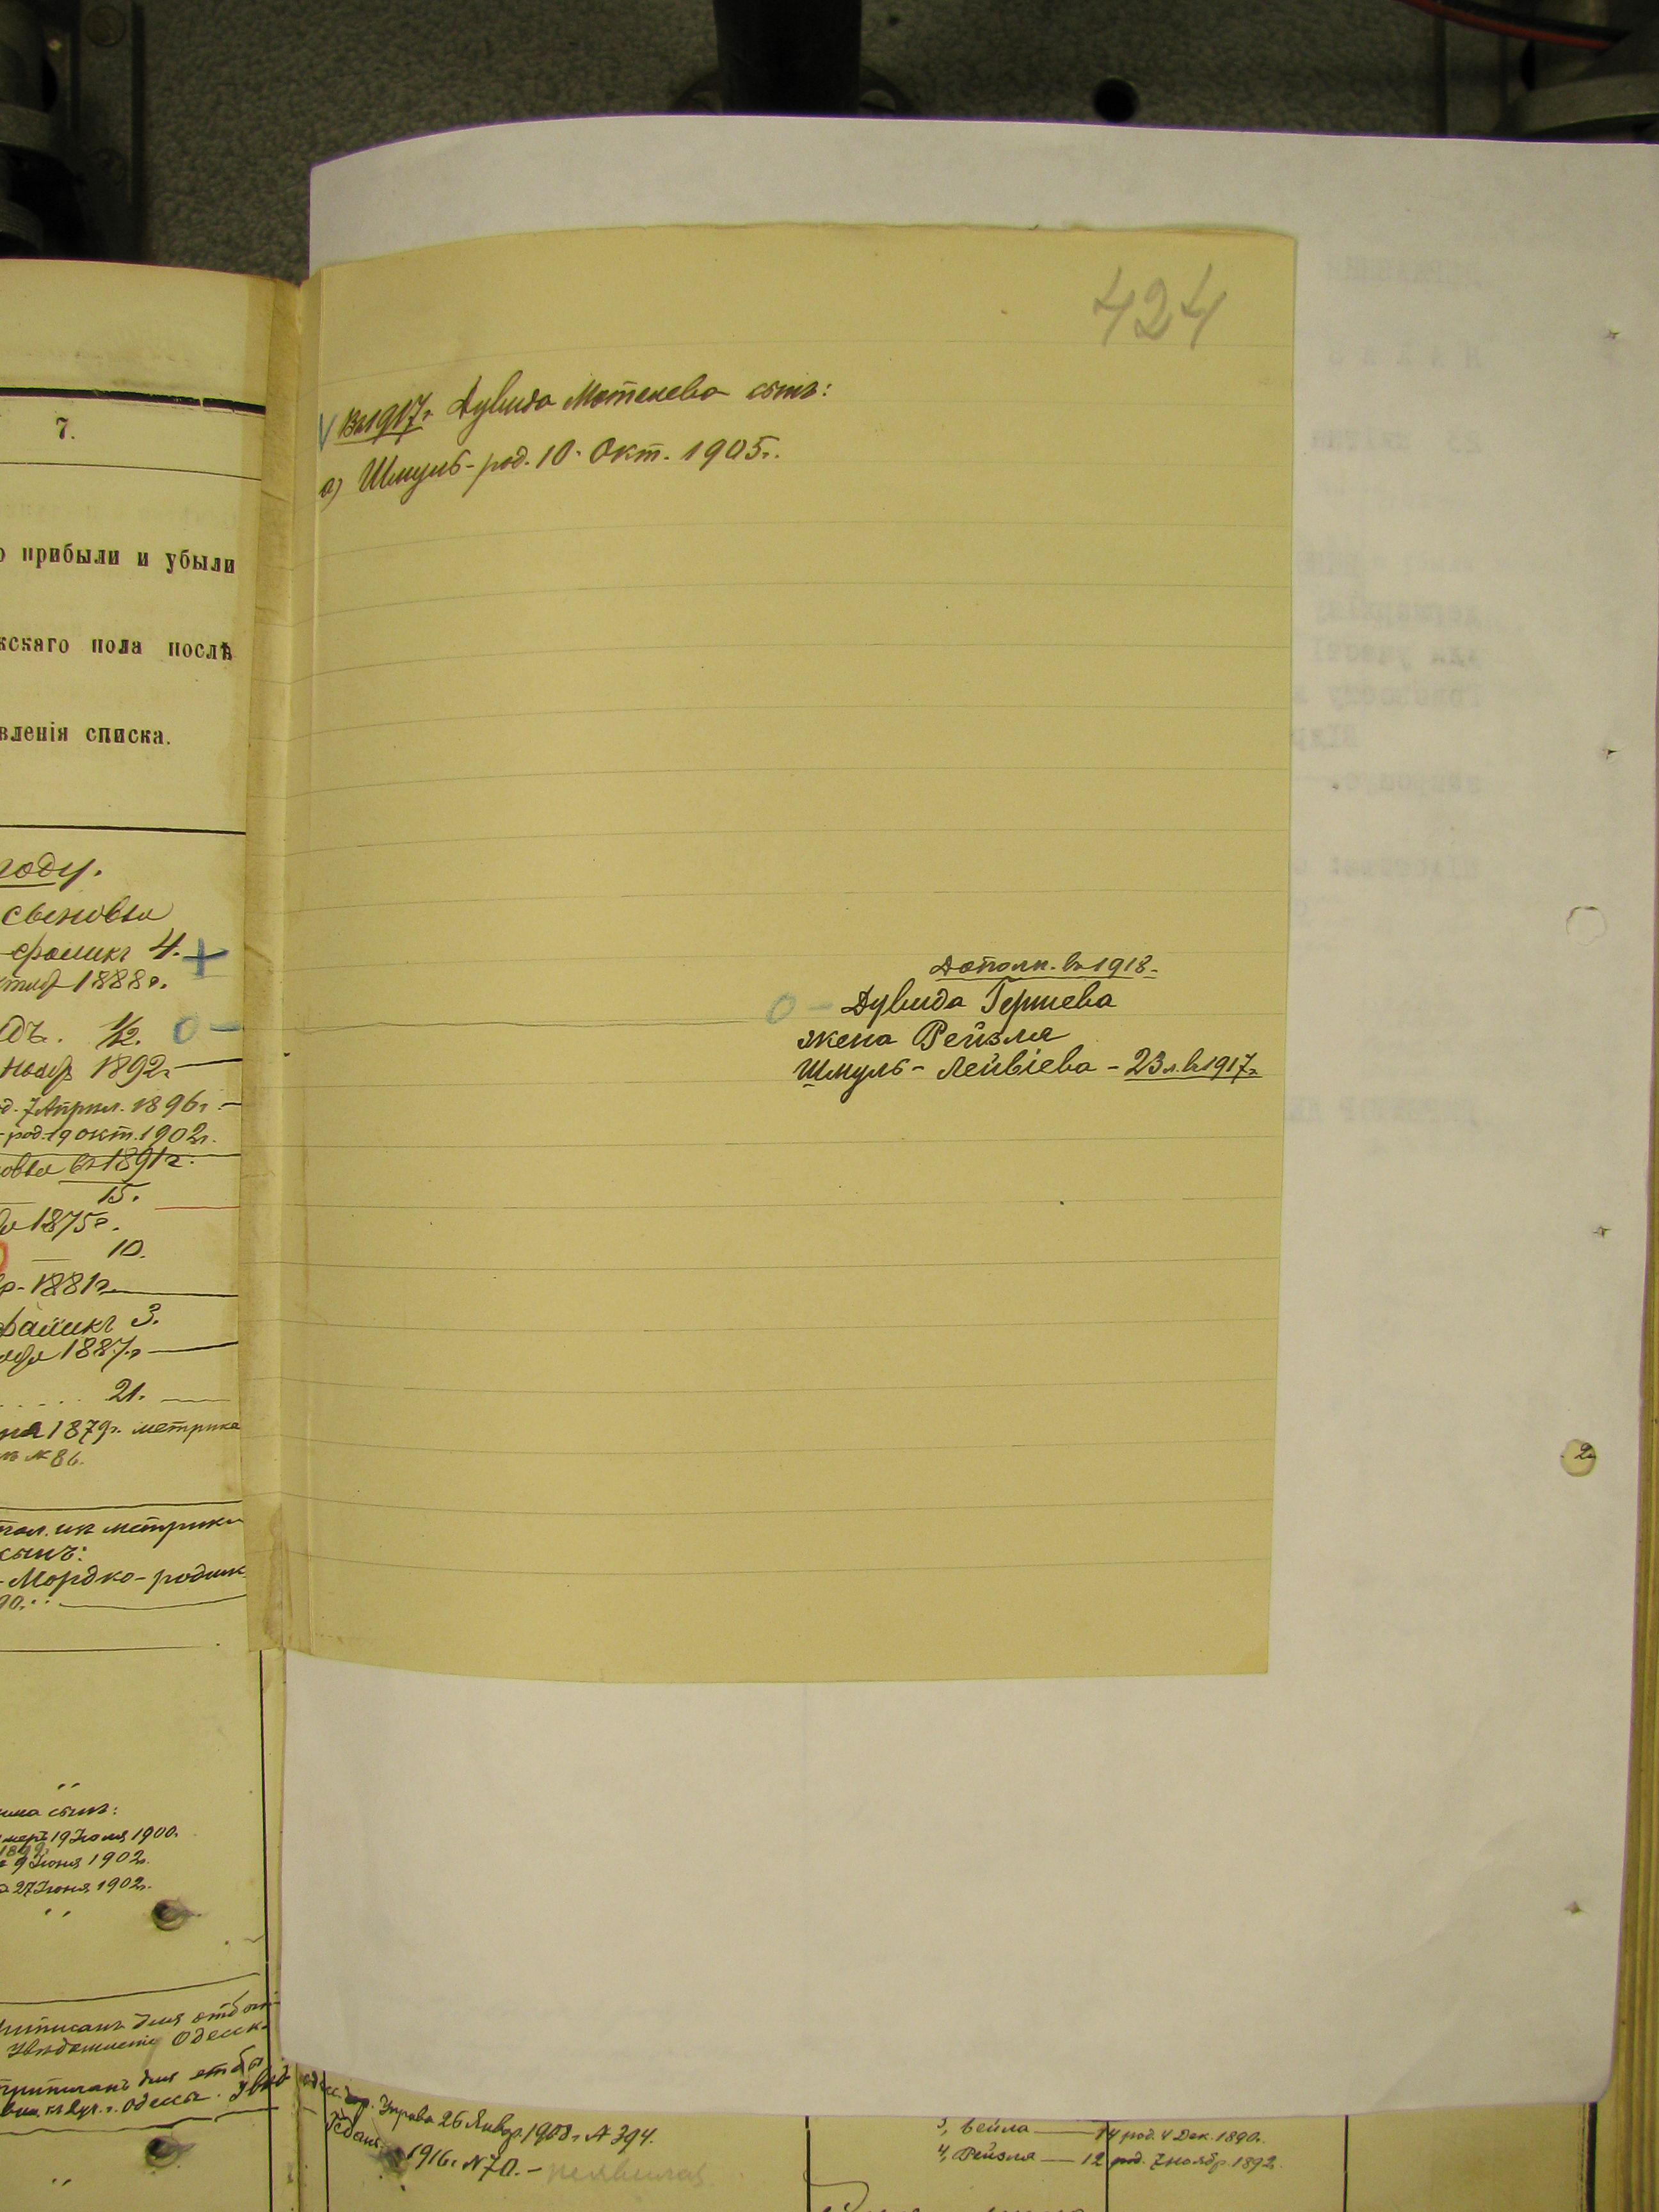 424
Въ 1917 г. Дувида Мотелева сынъ:
а) Шмуль - род. 10. Окт. 1905 г.
Дополн. въ 1918.
О - Дувида Гершева
жена Рейзля
Шмуль - Лейвіева - 23 л. въ 1917 г.
7.
о прибыли и убыли
жскаго пола послѣ
вленія списка.
году.
сыновья
4. +
1888 г.
1/2. О -
нояб 1892 г.
7 Април. 1896 г. -
- род. 19 окт. 1902 г.
овья въ 1891 г.
15.
1875 г.
10.
р - 1881 г.
3.
1887 г.
21.
1879 г. метрика
№ 86.
метрики
сынъ:
- Мордко - родил
90.
сынъ:
умеръ 19 Іюля 1900.
1899
9 Іюня 1902 г.
27 Іюня 1902 г.
приписанъ для отбы
Одесск
приписанъ для отбы
г. Одессы.
Управа 26 Январ. 1908 г. № 394.
1916 г. № 70. -
3, Бейла — 14 род. 4 Дек. 1890 г.
4, Рейзля — 12 род. 7 ноябр. 1892
2